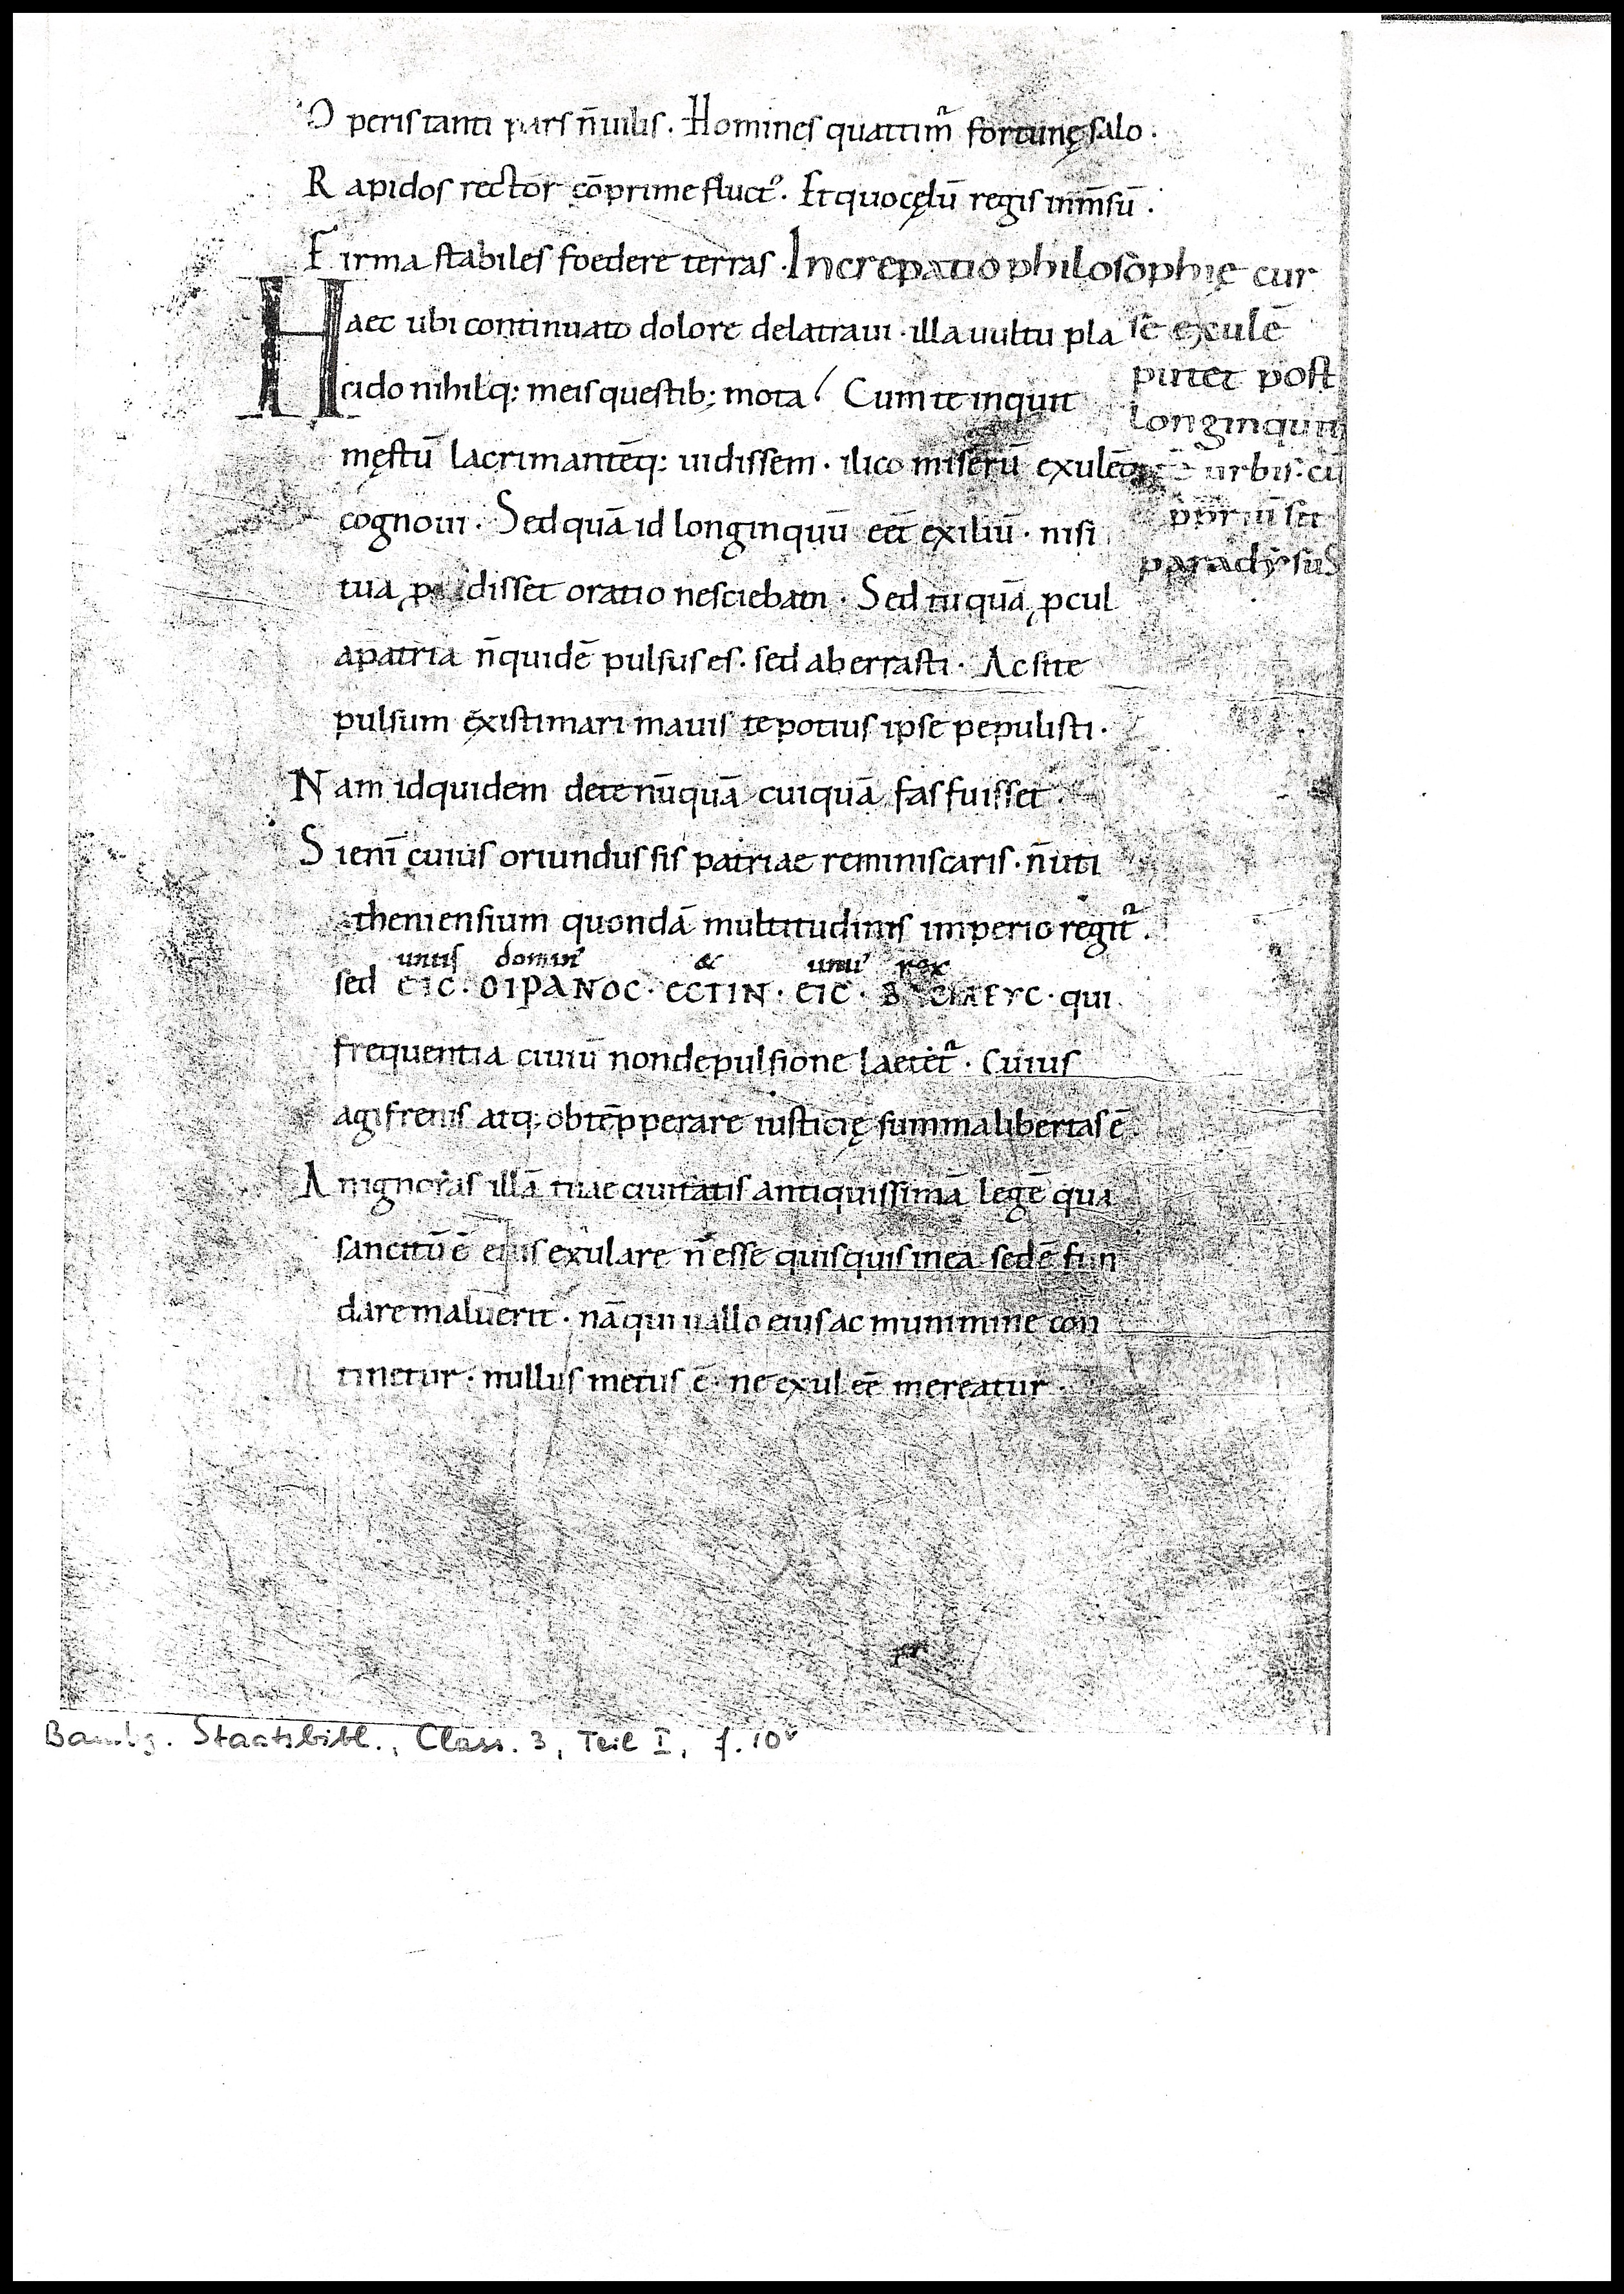 O peris tanti pars n̄ uilis. Homines quatimur fortunę salo.
R apidos rector cōprime fluctꝰ. Et quo cęlū regis inm̄sū.
F irma stabiles foedere terras. Increpatio philosophię cur
Haec ubi continuato dolore delatraui. illa uultu pla
se exulē
cido nihilq; meis questib; mota. Cum te inquit
putet post
Longinquū
męstū lacrimantēq; uidissem. ilico miserū exulēq;
urbis. cū
cognoui. Sed quā id longinquū eēt exiliū. nisi
tua ꝓdidisset oratio nesciebam. Sed tu quā ꝓcul
paradysus
a patria n̄ quidē pulsus es. sed aberrasti. Ac si te
pulsum existimari mauis te potius ipse pepulisti.
N am id quidem de te nūquā cuiquā fas fuisset
S i enī cuius oriundus sis patriae reminiscaris. n̄ uti
atheniensium quondā multitudinis imperio regit᷑.
unus dominꝰ & unuꝰ rex
sed EIC. OIPANOC. ECTIN. EIC. BACIΛEYC. qui
frequentia ciuiū non depulsione laetet᷑. Cuius
agi frenis atq; obtēpperare iusticię summa libertas ē.
A n ignoras illā tuae ciuitatis antiquissimā legē qua
sancitū ē ei ius exulare n̄ esse quisquis in ea sedē fun
dare maluerit. nā qui uallo eius ac munimine con
tinetur. nullus metus ē. ne exul eē mereatur.
Bambg. Staatsbibl., Class. 3, Teil I, f. 10v